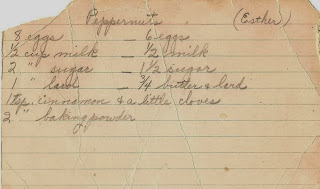 Peppernuts (Esther)
8 eggs — 6 eggs
½ cup milk — ½ milk
2 " sugar — 1½ sugar
1 " lard — ¾ butter & lard
1 tsp. cinnamon & a little cloves
2 " baking powder